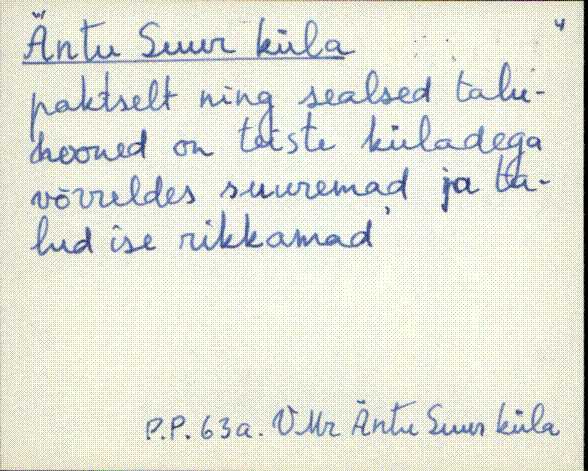 Äntu Suur küla
4
paktselt ning sealsed talu-
hooned on teiste küladega
võrreldes suuremad ja ta-
lud ise rikkamad'
P.P. 63a. VMr Äntu Suur küla